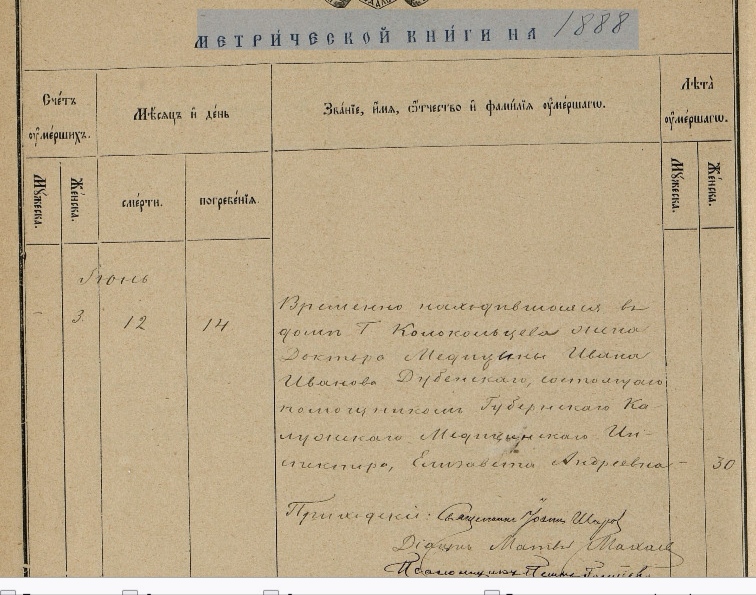 МЕТРИ́ЧЕСКОЙ КНИ́ГИ НА 1888
Счетъ оумершихъ.
Мѣсяцъ и день
Званіе, имя, отчество и фамилія оумершагω.
Лѣта оумершагω.
Мужеска.
Женска.
смерти.
погребенія.
Мужеска.
Женска.
Іюнь
- 3. 12 14
Временно находившаяся въ
домѣ Г Колокольцева жена
Доктора Медицины Ивана
Иванова Дубенскаго, состоящаго
помощникомъ Губернскаго Ка-
лужскаго Медицинскаго Ин-
спектора, Елизавета Андреевна - 30
Приходскій: Священникъ Іоаннъ
Діаконъ
Псаломщикъ